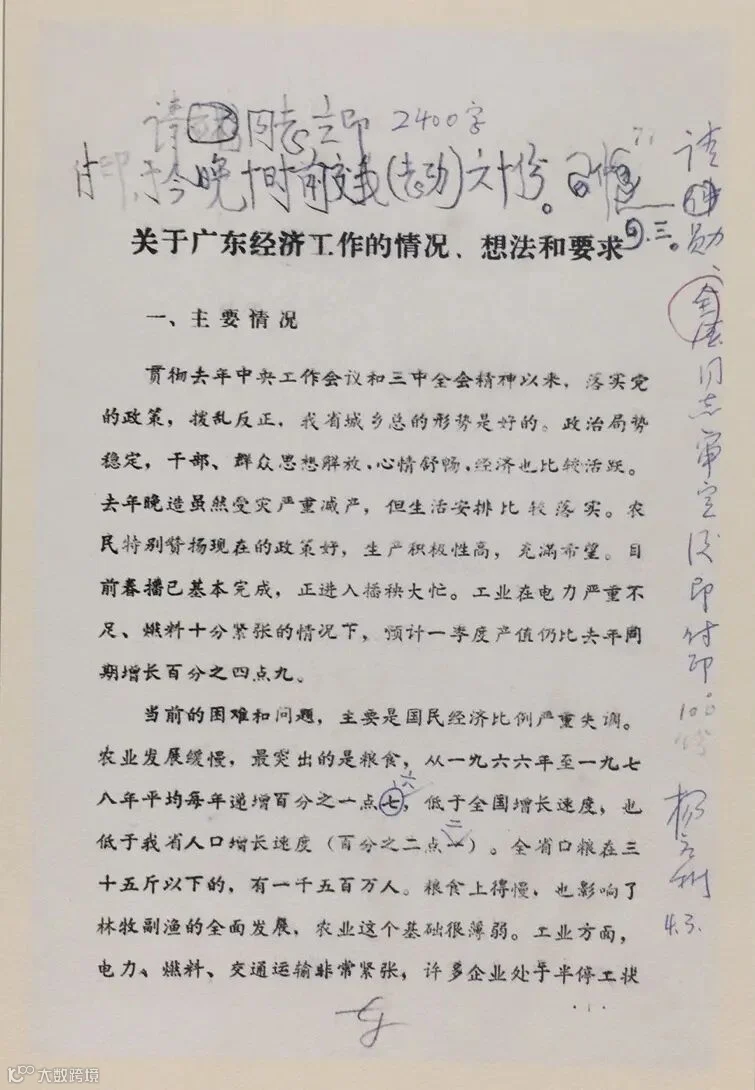 请 同志立即 2400字
付印,于今晚十时前交我(志功)六十份。
关于广东经济工作的情况、想法和要求
一、主要情况
贯彻去年中央工作会议和三中全会精神以来,落实党
的政策,拨乱反正,我省城乡总的形势是好的。政治局势
稳定,干部、群众思想解放,心情舒畅,经济也比较活跃。
去年晚造虽然受灾严重减产,但生活安排比较落实。农
民特别赞扬现在的政策好,生产积极性高,充满希望。目
前春播已基本完成,正进入插秧大忙。工业在电力严重不
足、燃料十分紧张的情况下,预计一季度产值仍比去年同
期增长百分之四点九。
当前的困难和问题,主要是国民经济比例严重失调。
农业发展缓慢,最突出的是粮食,从一九六六年至一九七
六
八年平均每年递增百分之一点七,低于全国增长速度,也
二
低于我省人口增长速度(百分之二点一)。全省口粮在三
十五斤以下的,有一千五百万人。粮食上得慢,也影响了
林牧副渔的全面发展,农业这个基础很薄弱。工业方面,
电力、燃料、交通运输非常紧张,许多企业处于半停工状
·1·
请 勋、
全 同志审定后即付印
100
份
4.3.
大数跨境